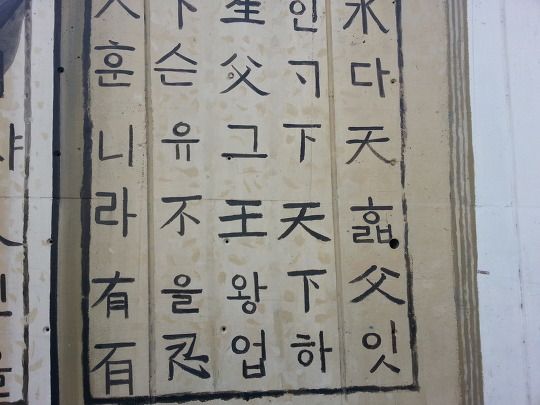 다天父잇
인ㄱ下天下하
父그王왕업
슨유不을忍
훈니라有百